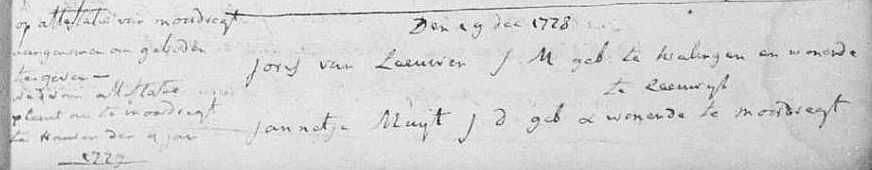 op attestatie van moordregt
aangenomen om geboden
te geven —
wederom attestatie
plaint om te moordregt
te trouwen den 9 jan
1729
Den 19 dec 1728
Joris van Leeuwen J M geb. te Kralingen en wonende
te Reeuwijk
Jannetje Muijt J d geb & wonende te moordregt